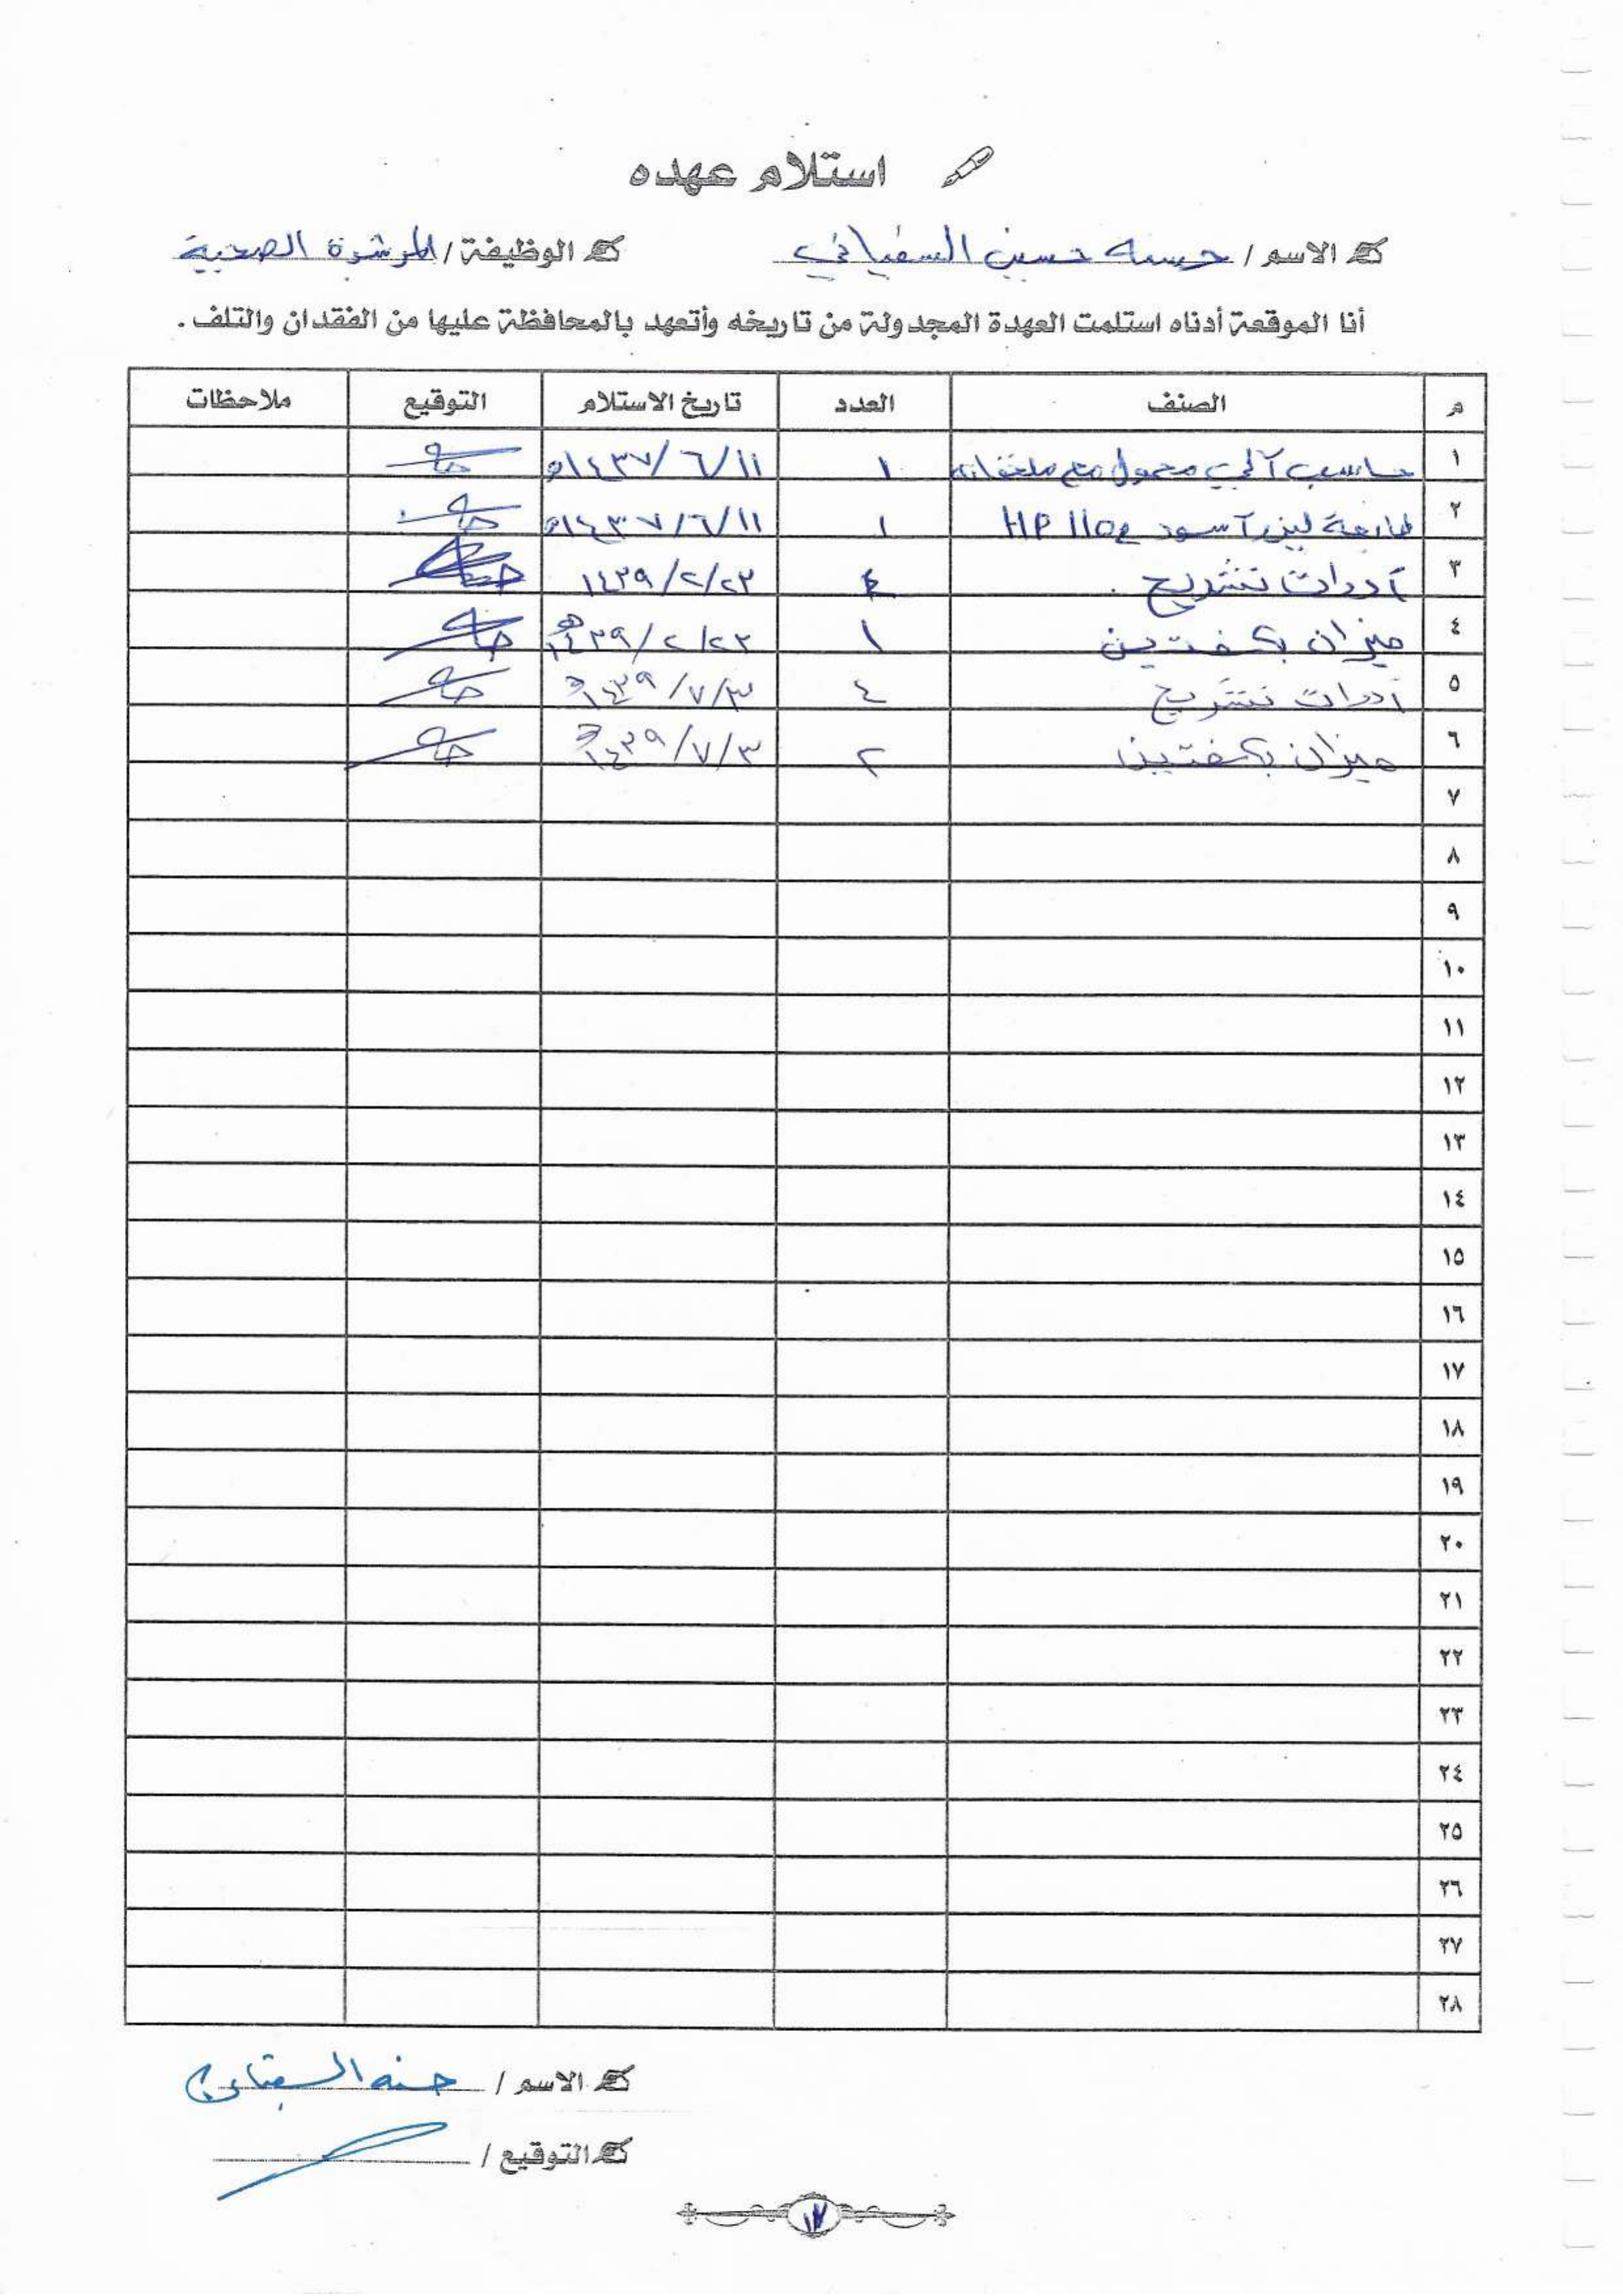 استلام عهده
الاسم / حسنه حسين السفياني الوظيفة / المرشدة الصحية
أنا الموقعة أدناه استلمت العهدة المجدولة من تاريخه وأتعهد بالمحافظة عليها من الفقدان والتلف .
م الصنف العدد تاريخ الاستلام التوقيع ملاحظات
١ حاسب آلي محمول مع ملحقاته ١ ١٤٣٧/٦/١١هـ
٢ طابعة ليزر آسود HP 110e ١ ١٤٣٧/٦/١١هـ
٣ آدوات تشريح . ٤ ١٤٣٩/٢/٢٣
٤ ميزان بكفتين ١ ١٤٣٩/٢/٢٣هـ
٥ أدوات تشريح ٤ ١٤٣٩/٧/٣هـ
٦ ميزان بكفتين ٢ ١٤٣٩/٧/٣هـ
٧
٨
٩
١٠
١١
١٢
١٣
١٤
١٥
١٦
١٧
١٨
١٩
٢٠
٢١
٢٢
٢٣
٢٤
٢٥
٢٦
٢٧
٢٨
الاسم / حسنه السفياني
التوقيع /
١٧